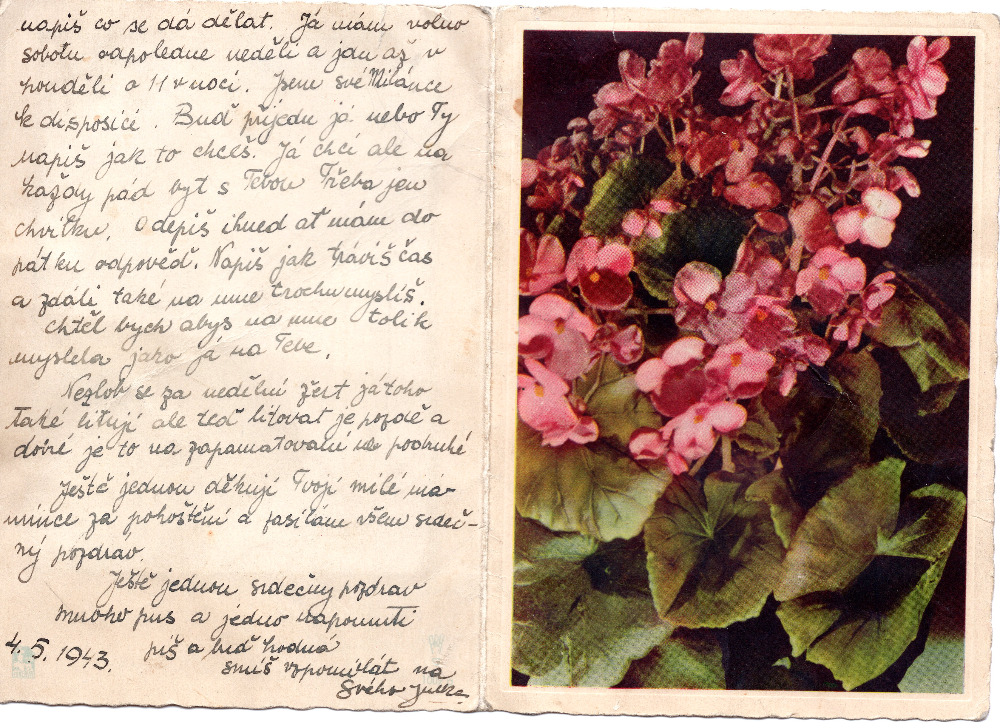 napiš co se dá dělat. Já mám volno
sobotu odpoledne neděli a jdu až v
pondělí o 11 v noci. Jsem své Milánce
k disposici. Buď přijedu já nebo Ty
napiš jak to chceš. Já chci ale na
každý pád byt s Tebou Třeba jen
chvilku. Odepiš ihned ať mám do
pátku odpověď. Napiš jak trávíš čas
a zdáli také na mne trochu myslíš.
Chtěl bych abys na mne tolik
myslela jako já na Tebe.
Nezlob se za nedělní žert já toho
také lituji ale teď litovat je pozdě a
dobré je to na zapamatování podruhé
Ještě jednou děkuji Tvojí milé ma-
mince za pohoštění a zasílám všem srdeč-
ný pozdrav.
Ještě jednou srdečný pozdrav
mnoho pus a jedno napomenutí
piš a buď hodná
smíš vzpomínat na
Svého
4.5.1943.